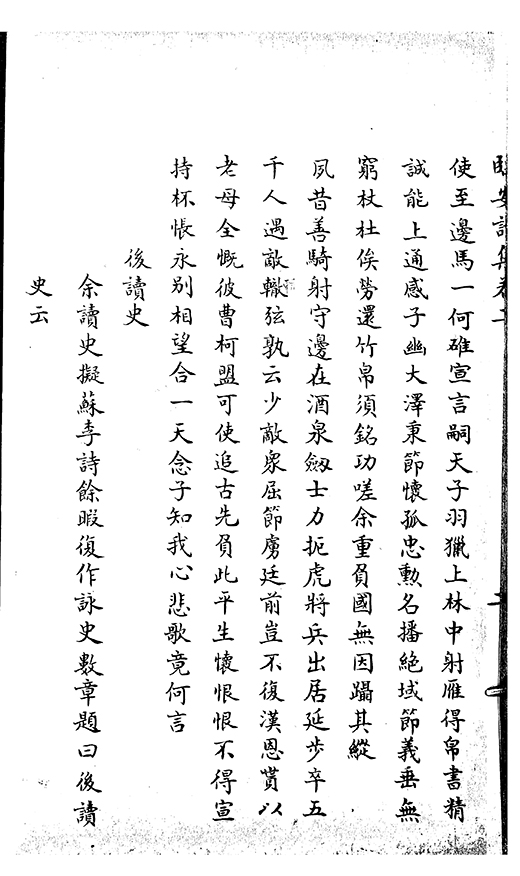 臨安詩集卷二
二
使至邊馬一何確宣言嗣天子羽獵上林中射雁得帛書精
誠能上通感子幽大澤秉節懷孤忠勲名播絶域節義垂無
窮杖杜俟勞還竹帛須銘功嗟余重負國無因躡其縱
夙昔善騎射守邊在酒泉劒士力扼虎將兵出居延步卒五
千人遇敵轍弦孰云少敵衆屈節虜廷前豈不復漢恩貰以
老母全慨彼曹柯盟可使追古先負此平生懷恨恨不得宣
持杯悵永别相望合一天念子知我心悲歌竟何言
後讀史
余讀史擬蘇李詩餘暇復作詠史數章題曰後讀
史云